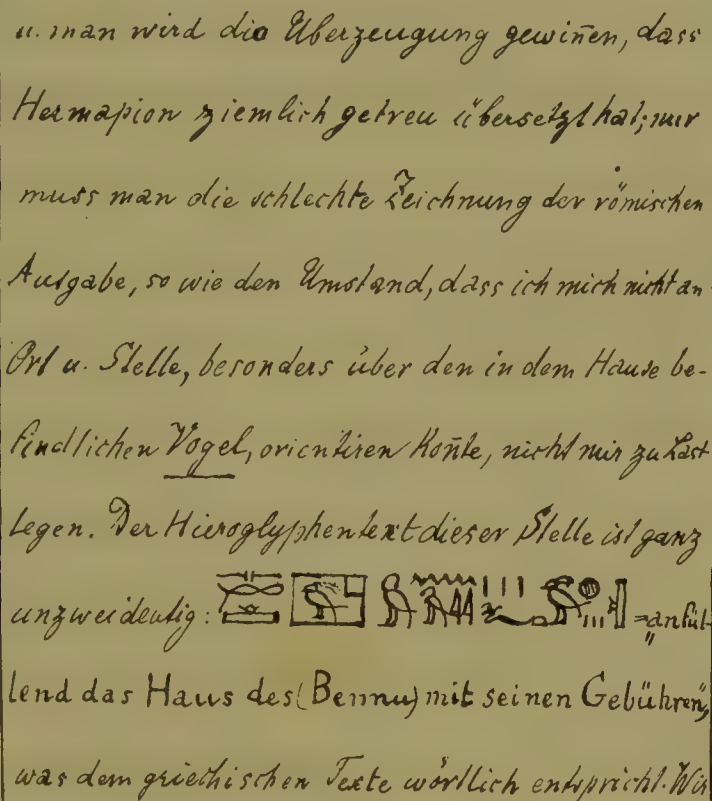 u. man wird die Überzeugung gewin̄en, dass
Hermapion ziemlich getreu übersetzt hat; nur
muss man die schlechte Zeichnung der römischen
Ausgabe, so wie den Umstand, dass ich mich nicht an
Ort u. Stelle, besonders über den in dem Hause be-
findlichen Vogel, orientiren kon̄te, nicht mir zu Last
legen. Der Hieroglyphentext dieser Stelle ist ganz
unzweideutig: = „anfül-
lend das Haus des (Bennu) mit seinen Gebühren“,
was dem griechischen Texte wörtlich entspricht. Wir